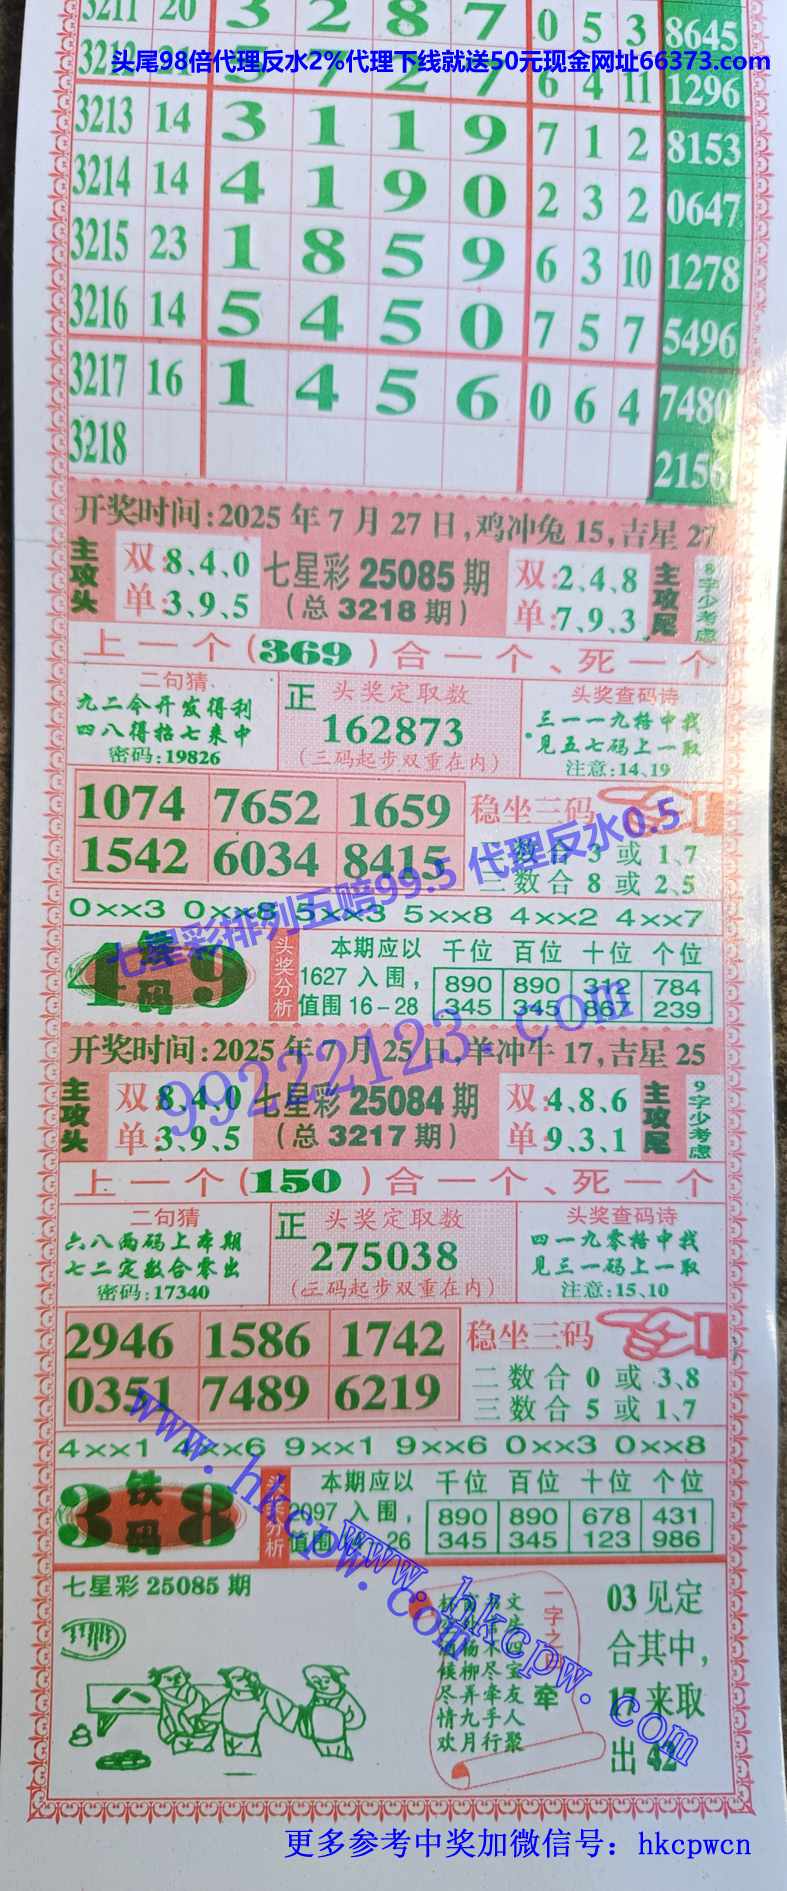 3211 20 3 2 8 7 0 5 3 8645
头尾98倍代理反水2%代理下线就送50元现金网址66373.com
3212 21 5 7 2 7 6 4 11 1296
3213 14 3 1 1 9 7 1 2 8153
3214 14 4 1 9 0 2 3 2 0647
3215 23 1 8 5 9 6 3 10 1278
3216 14 5 4 5 0 7 5 7 5496
3217 16 1 4 5 6 0 6 4 7480
3218 2156
开奖时间:2025年7月27日,鸡冲兔15,吉星27
主攻头 双:8、4、0 七星彩25085期 双:2、4、8 主攻尾 8字少考虑
单:3、9、5 (总3218期) 单:7、9、3
上一个(369)合一个、死一个
二句猜 正 头奖定取数 头奖查码诗
九二今开发得利 162873 三一一九格中找
四八得招七来中 (三码起步双重在内) 见五七码上一取
密码:19826 注意:14、19
1074 7652 1659 稳坐三码
1542 6034 8415 二数合3或1、7
三数合8或2、5
七星彩排列五赔99.5 代理反水0.5
0××3 0××8 5××3 5××8 4××2 4××7
4 铁码 9 头奖分析 本期应以 千位 百位 十位 个位
1627入围, 890 890 312 784
值围16-28 345 345 867 239
99222123.com
开奖时间:2025年7月25日,羊冲牛17,吉星25
主攻头 双:8、4、0 七星彩25084期 双:4、8、6 主攻尾 9字少考虑
单:3、9、5 (总3217期) 单:9、3、1
上一个(150)合一个、死一个
二句猜 正 头奖定取数 头奖查码诗
六八两码上本期 275038 四一九零格中找
七二定数合零出 (三码起步双重在内) 见三一码上一取
密码:17340 注意:15、10
2946 1586 1742 稳坐三码
0351 7489 6219 二数合0或3、8
三数合5或1、7
4××1 4××6 9××1 9××6 0××3 0××8
3 铁码 8 头奖分析 本期应以 千位 百位 十位 个位
2097入围, 890 890 678 431
值围 26 345 345 123 986
www.hkcpw.com
www.hkcpw.com
七星彩25085期
一字之曰 牵
文 四宝友人聚
不尽牵手行
杨柳弄九月
候尽情欢
03见定
合其中,
17来取
出42
更多参考中奖加微信号：hkcpwcn